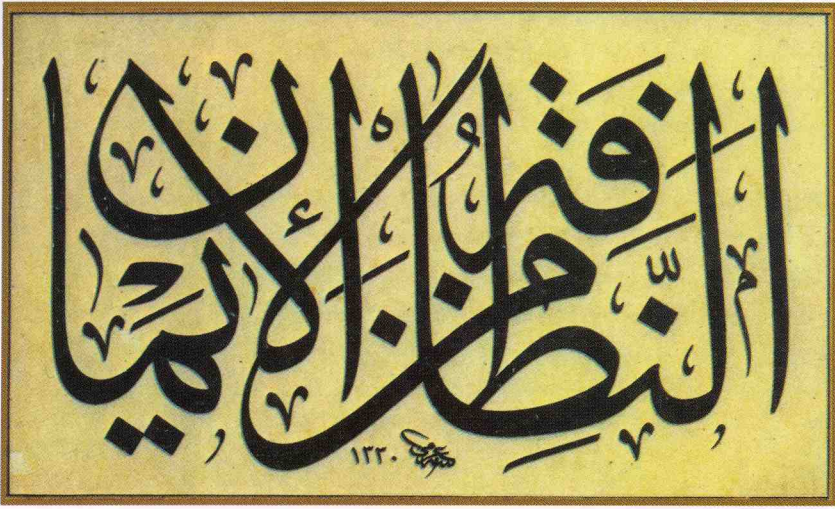 النَّظَافَةُ مِنَ الْإِيمَانِ
١٣٣٠